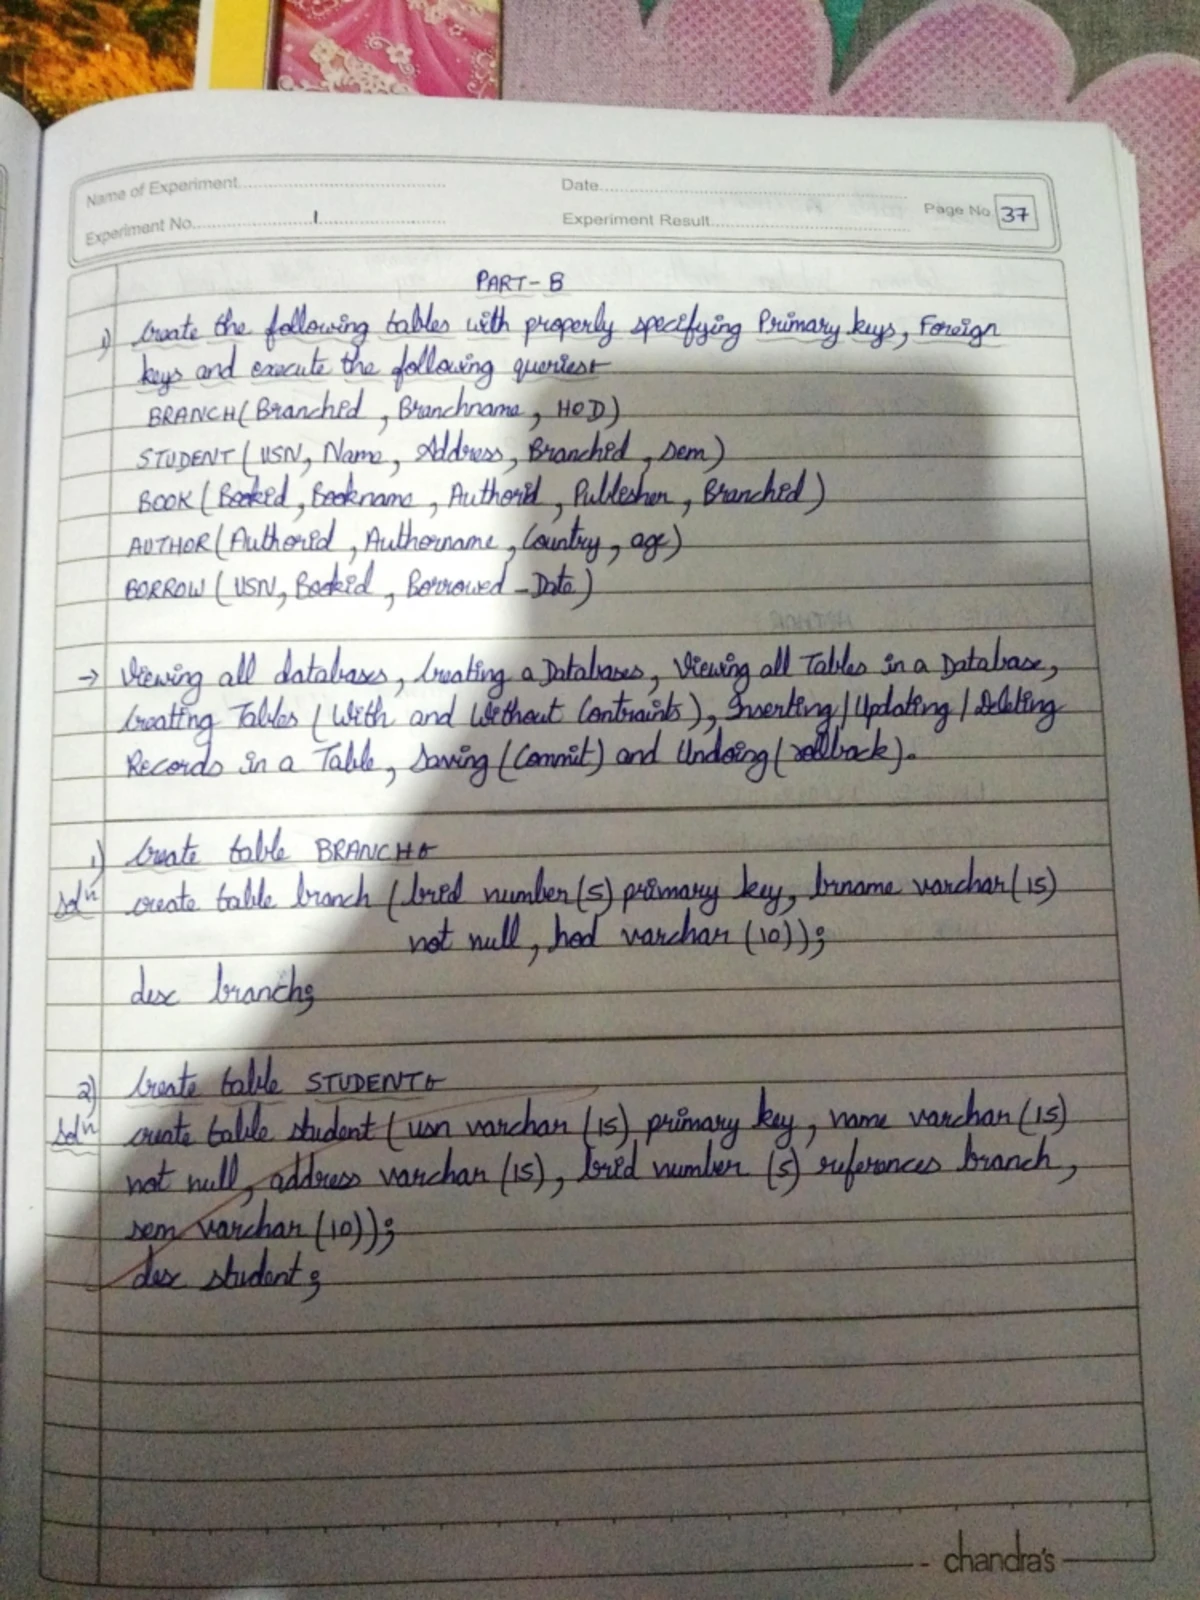 Name of Experiment
Date
Experiment No. 1
Experiment Result
Page No. 37
PART-B
1) Create the following tables with properly specifying Primary keys, Foreign
keys and execute the following queries:-
BRANCH(Branchid, Branchname, HOD)
STUDENT(USN, Name, Address, Branchid, sem)
BOOK(Bookid, Bookname, Authorid, Publisher, Branchid)
AUTHOR(Authorid, Authorname, Country, age)
BORROW(USN, Bookid, Borrowed-Date)
→ Viewing all databases, Creating a Databases, Viewing all Tables in a Database,
Creating Tables (With and Without Contraints), Inserting/Updating/Deleting
Records in a Table, Saving (Commit) and Undoing (rollback).
1) Create table BRANCH:-
Solⁿ create table branch (brid number(5) primary key, brname varchar(15)
not null, hod varchar (10));
desc branch;
2) Create table STUDENT:-
Solⁿ create table student (usn varchar (15) primary key, name varchar (15)
not null, address varchar (15), brid number (5) references branch,
sem varchar (10));
desc student;
chandra's